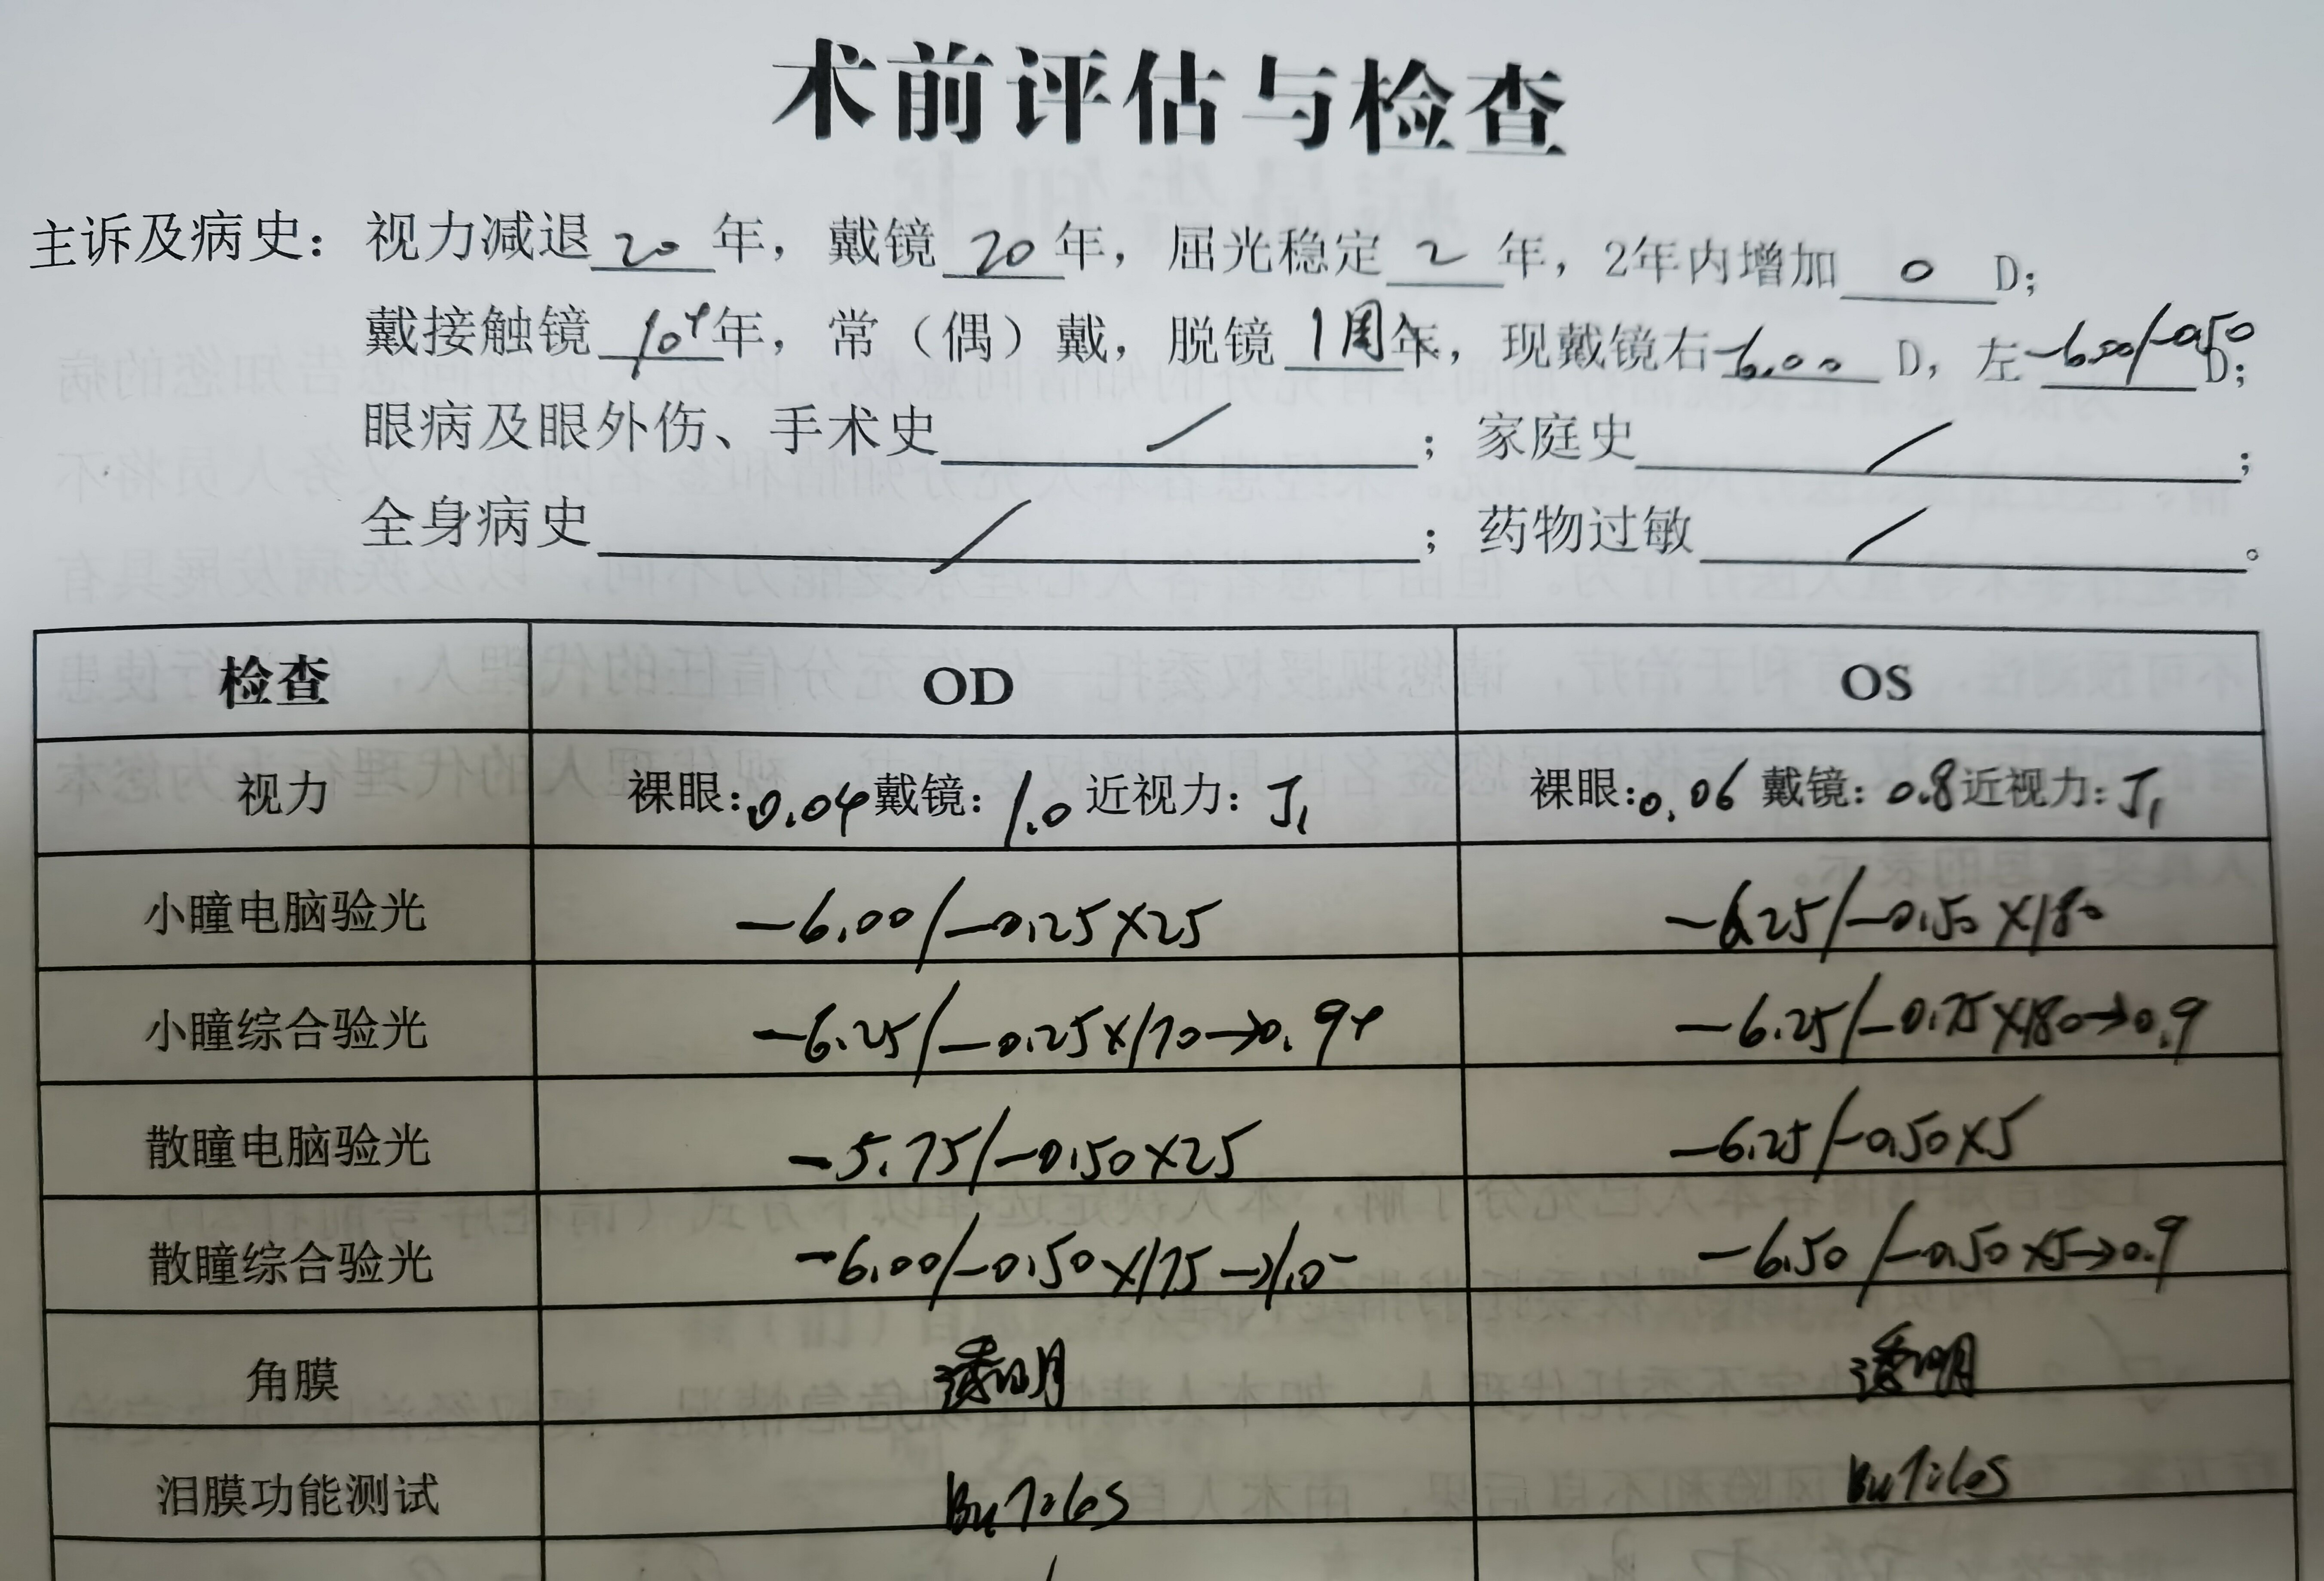 术前评估与检查
主诉及病史：视力减退 20 年，戴镜 20 年，屈光稳定 2 年，2年内增加 0 D；
戴接触镜 10+ 年，常（偶）戴，脱镜 1周 年，现戴镜右 -6.00 D，左 -6.00/-0.50 D；
眼病及眼外伤、手术史 / ；家庭史 / ；
全身病史 / ；药物过敏 / 。
检查 OD OS
视力 裸眼：0.04 戴镜：1.0 近视力：J1 裸眼：0.06 戴镜：0.8 近视力：J1
小瞳电脑验光 -6.00/-0.25×25 -6.25/-0.50×180
小瞳综合验光 -6.25/-0.25×170→0.9+ -6.25/-0.75×180→0.9
散瞳电脑验光 -5.75/-0.50×25 -6.25/-0.50×5
散瞳综合验光 -6.00/-0.50×175→1.0- -6.50/-0.50×5→0.9
角膜 透明 透明
泪膜功能测试 But: 10s But: 10s